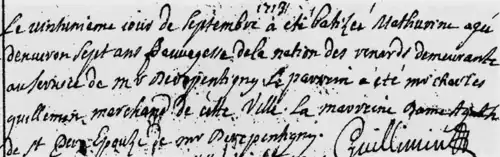 1713
Le vintunieme iour de septembre a été batisée Mathurine agée
denuiron sept ans sauuagesse de la nation des renards demeurante
au seruice de mr Derepentigny. Le parrein a été mr charles
guillemin marchand de cette Ville. La marreine Dame Agath
de st Pere Epouse de mr Derepentigny.
Guillimin